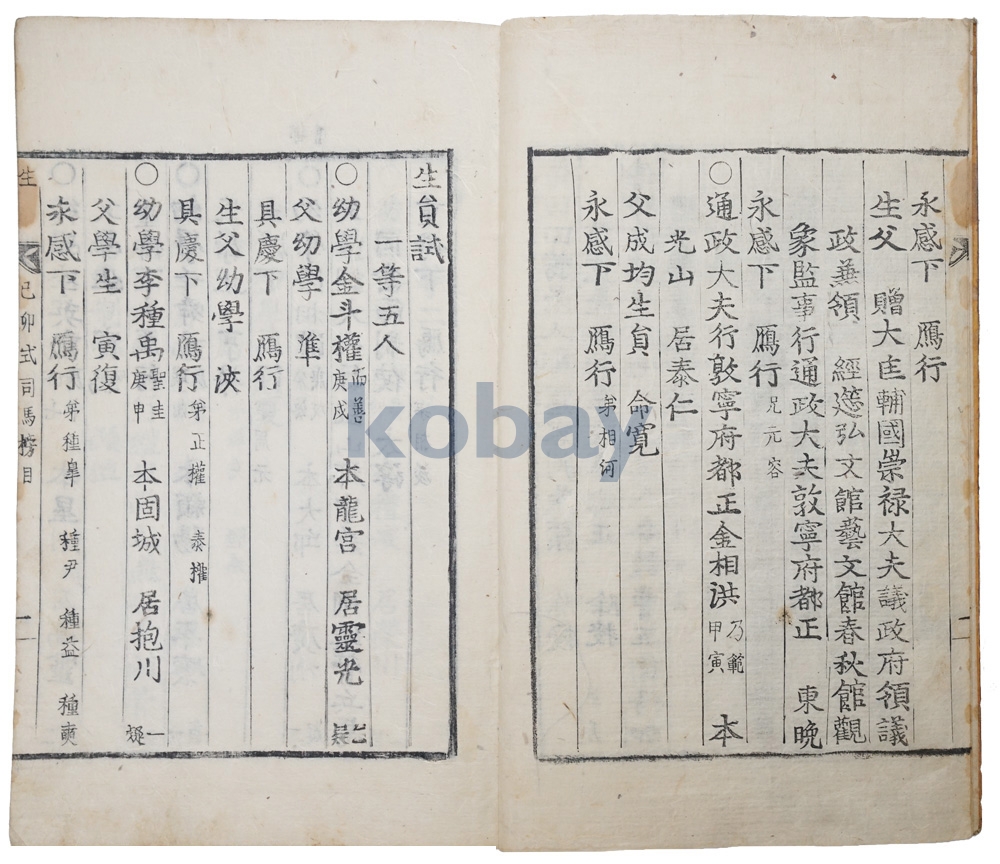 永感下 鴈行
生父 贈大匡輔國崇禄大夫議政府領議
政兼領 經筵弘文館藝文館春秋館觀
象監事行通政大夫敦寧府都正 東晩
永感下 鴈行 兄元容
○通政大夫行敦寧府都正金相洪 乃範 甲寅 本
光山 居泰仁
父成均生員 命寬
永感下 鴈行 弟相河
生員試
一等五人
○幼學金斗權 而善 庚戌 本龍宮 居靈光 七疑
父幼學 準
具慶下 鴈行
生父幼學 浹
具慶下 鴈行 弟正權 泰權
○幼學李種禹 聖圭 庚申 本固城 居抱川 一疑
父學生 寅復
永感下 鴈行 弟種臯 種尹 種益 種奭
生 己卯式司馬榜目 一
二
kobay